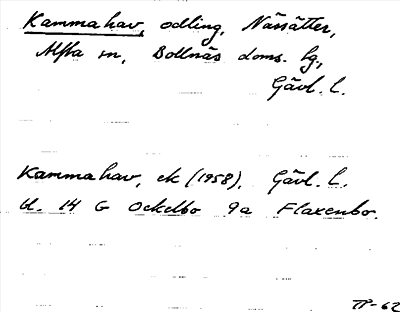 Kammahav, odling, Nässätter,
Alfta sn, Bollnäs doms. sg.,
Gävl. l.
Kammahav, ek (1958), Gävl. l.
bl. 14 G Ockelbo 9a Flaxenbo.
TP-62